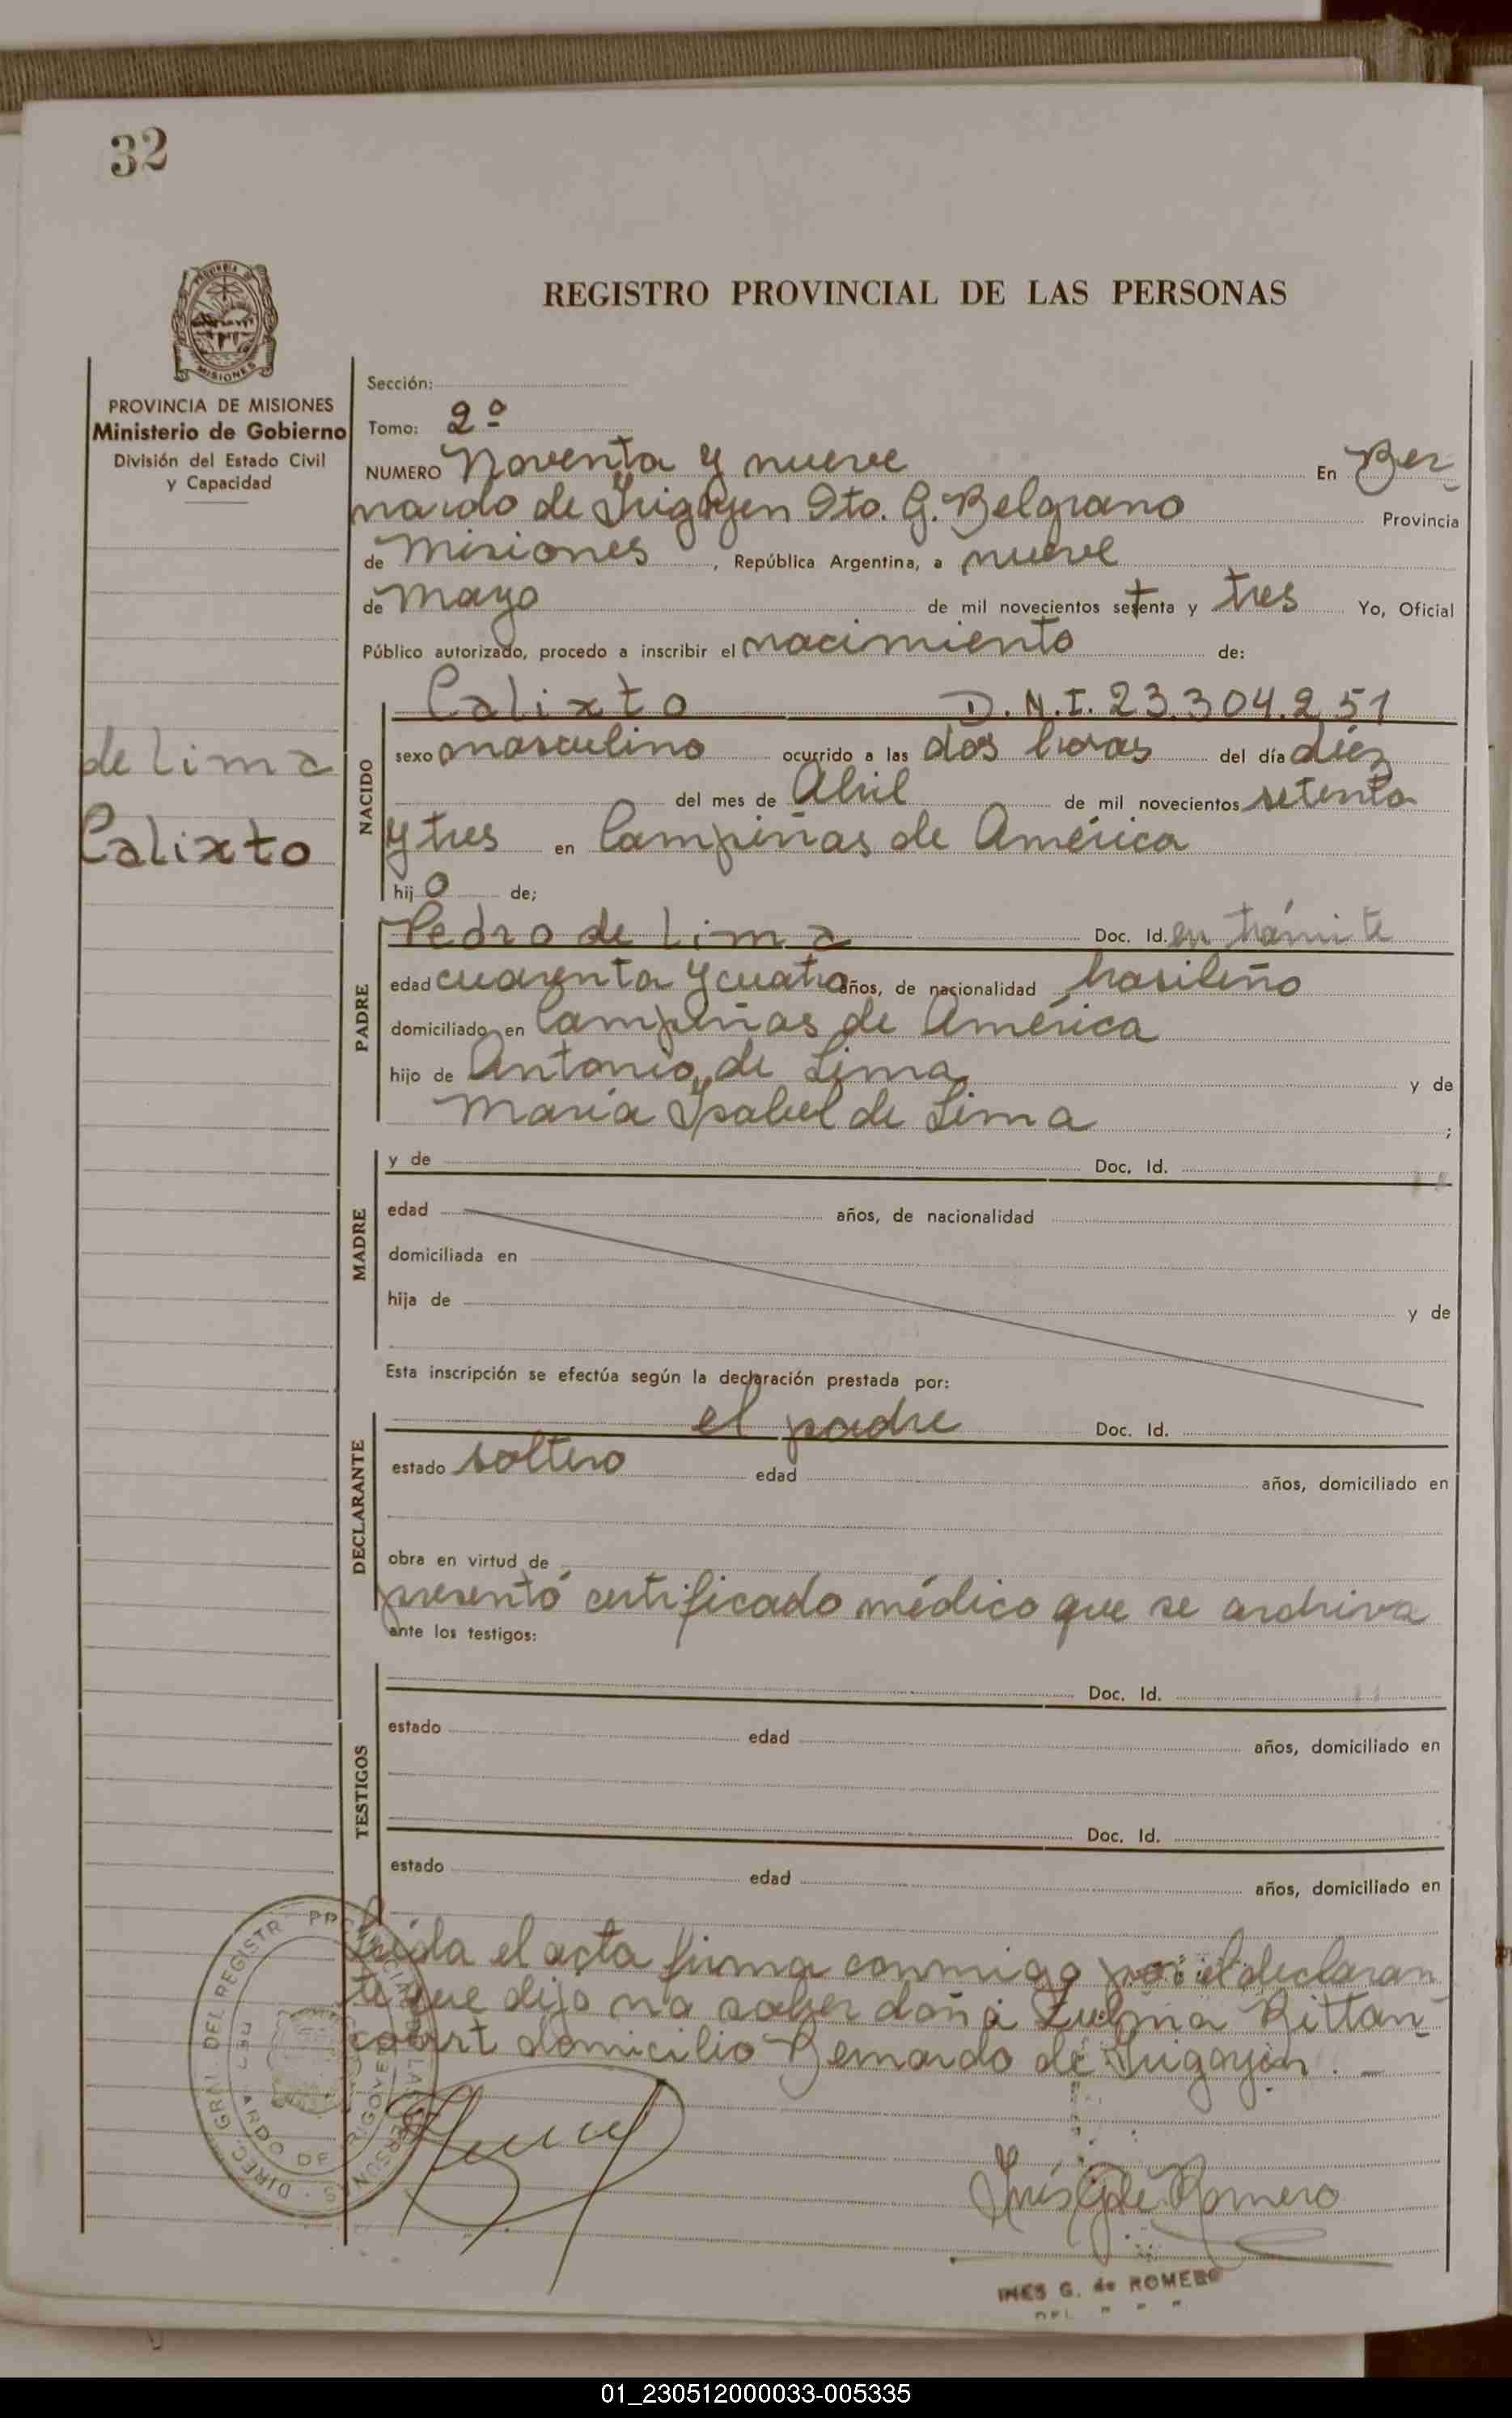 32
REGISTRO PROVINCIAL DE LAS PERSONAS
MISIONES
PROVINCIA DE MISIONES
Ministerio de Gobierno
División del Estado Civil
y Capacidad
de Lima
Calixto
Sección:
Tomo: 2º
NUMERO Noventa y nueve En Ber
nardo de Irigoyen Dto. G. Belgrano Provincia
de Misiones, República Argentina, a nueve
de Mayo de mil novecientos setenta y tres Yo, Oficial
Público autorizado, procedo a inscribir el nacimiento de:
NACIDO
Calixto D.N.I. 23.304.251
sexo masculino ocurrido a las dos horas del día diez
del mes de Abril de mil novecientos setenta
y tres en Campiñas de América
hijo de;
PADRE
Pedro de Lima Doc. Id. en trámite
edad cuarenta y cuatro años, de nacionalidad brasileño
domiciliado en Campiñas de América
hijo de Antonio de Lima y de
María Isabel de Lima ;
MADRE
y de Doc. Id.
edad años, de nacionalidad
domiciliada en
hija de y de
Esta inscripción se efectúa según la declaración prestada por:
DECLARANTE
el padre Doc. Id.
estado soltero edad años, domiciliado en
obra en virtud de
presentó certificado médico que se archiva
ante los testigos:
TESTIGOS
Doc. Id.
estado edad años, domiciliado en
Doc. Id.
estado edad años, domiciliado en
Leída el acta firma conmigo por el declaran
te que dijo no saber doña Zulma Bittan
court domicilio Bernardo de Irigoyen. -
Inés G de Romero
INES G. de ROMERO
01_230512000033-005335